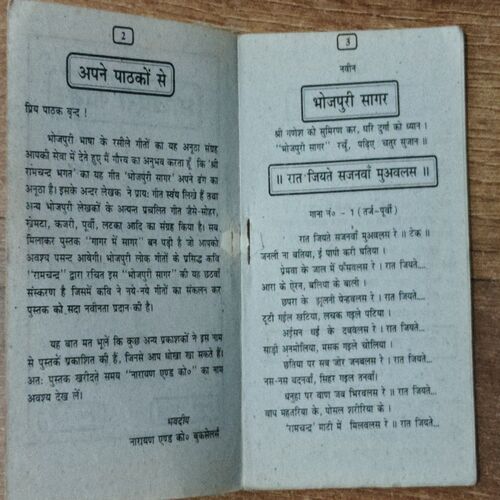 2
अपने पाठकों से
प्रिय पाठक वृन्द !
भोजपुरी भाषा के रसीले गीतों का यह अनूठा संग्रह
आपकी सेवा में देते हुए मैं गौरव का अनुभव करता हूँ कि 'श्री
रामचन्द्र भगत' का यह गीत 'भोजपुरी सागर' अपने ढंग का
अनूठा है। इसके अन्दर लेखक ने प्रायः गीत स्वयं लिखे हैं तथा
अन्य भोजपुरी लेखकों के अत्यन्त प्रचलित गीत जैसे-सोहर,
खेमटा, कजरी, पूर्वी, लटका आदि का संग्रह किया है। सब
मिलाकर पुस्तक "गागर में सागर" बन पड़ी है जो आपको
अवश्य पसन्द आयेगी। भोजपुरी लोक गीतों के प्रसिद्ध कवि
"रामचन्द्र" द्वारा रचित इस "भोजपुरी सागर" की यह छठवाँ
संस्करण है जिसमें कवि ने नये-नये गीतों का संकलन कर
पुस्तक को सदा नवीनता प्रदान की है।
यह बात मत भूलें कि कुछ अन्य प्रकाशकों ने इस नाम
से पुस्तकें प्रकाशित की हैं, जिनसे आप धोखा खा सकते हैं।
अतः पुस्तक खरीदते समय "नारायण एण्ड को०" का नाम
अवश्य देख लें।
भवदीय
नारायण एण्ड को० बुकसेलर्स
3
नवीन
भोजपुरी सागर
श्री गणेश को सुमिरण कर, धरि दुर्गा को ध्यान।
"भोजपुरी सागर" रचूँ, पढ़िए चतुर सुजान॥
॥ रात जियते सजनवाँ मुअवलस ॥
गाना नं० - 1 (तर्ज-पूर्वी)
रात जियते सजनवाँ मुअवलस रे ॥ टेक ॥
जनली ना बतिया, ई पापी करी घतिया।
प्रेमवा के जाल में फँसवलस रे। रात जियते...
आरा के ऐरन, बलिया के बाली।
छपरा के झुलनी पेन्हवलस रे। रात जियते...
टूटी गईल खटिया, लचक गइले पटिया।
अईसन धई के दबवलस रे। रात जियते...
साड़ी अनमोलिया, मसक गइले चोलिया।
छतिया पर सब जोर जनबलस रे। रात जियते...
नस-नस बदनवाँ, सिहर गइल तनवाँ।
धनुहा पर वाण जब भिरवलस रे॥ रात जियते...
बाप महतरिया के, पोसल शरीरिया के।
'रामचन्द्र' माटी में मिलवलस रे॥ रात जियते...